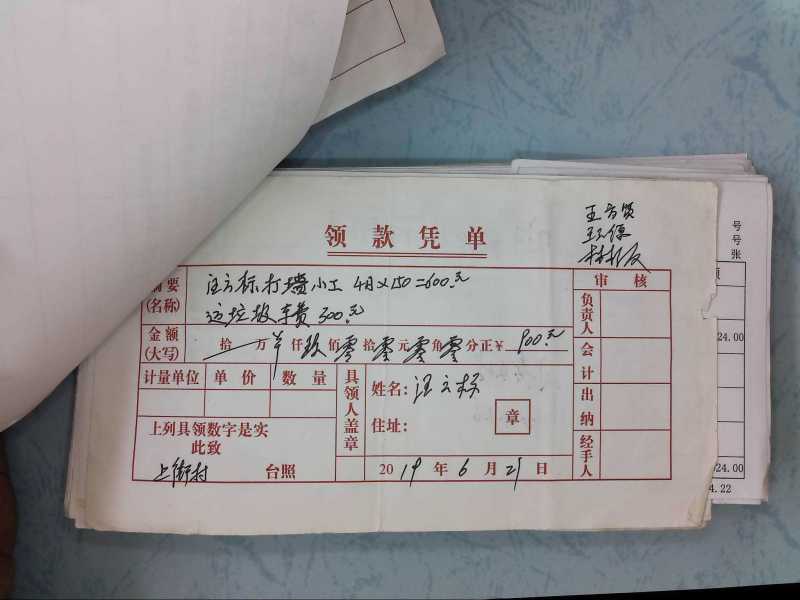 领款凭单
摘要
(名称)
汪立标打墙小工 4日×150=600元
运垃圾车费 300元
金额
(大写)
拾 万 仟 玖 佰 零 拾 零 元 零 角 零 分正¥ 900元
计量单位 单价 数量
具领人盖章
姓名:
住址:
章
上列具领数字是实
此致
上街村 台照
2019年6月21日
审核
负责人
会计
出纳
经手人
号
号
张
24.00
24.00
4.22